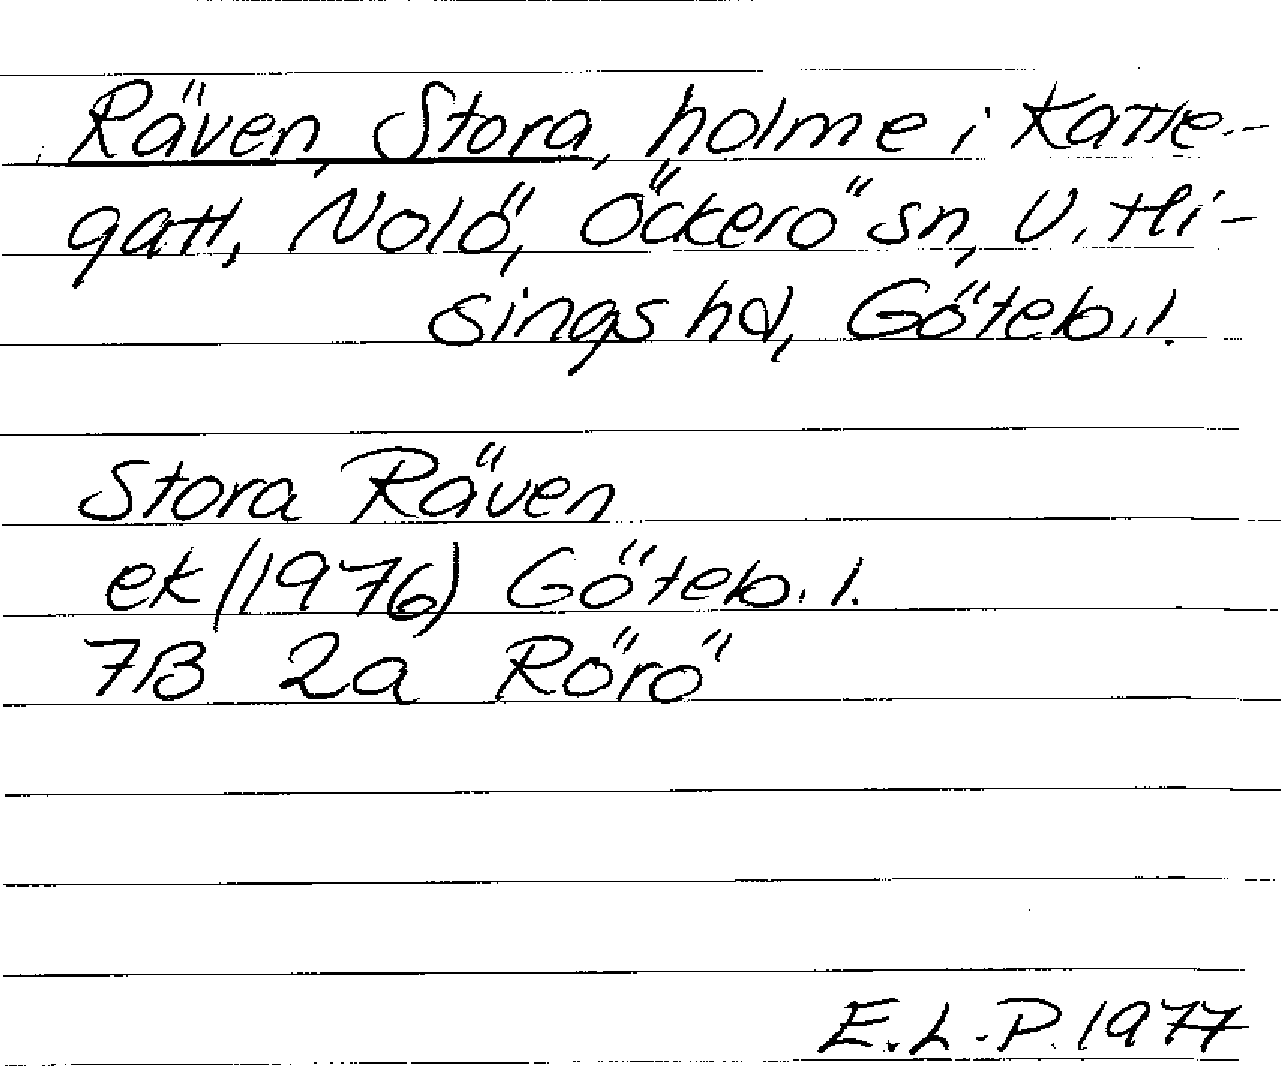 Räven, Stora, holme i Katte-
gatt, Nolö, Öckerö sn, V. Hi-
sings hd, Göteb. l.
Stora Räven
ek (1976) Göteb. l.
7B 2a Rörö
E.L.P. 1977